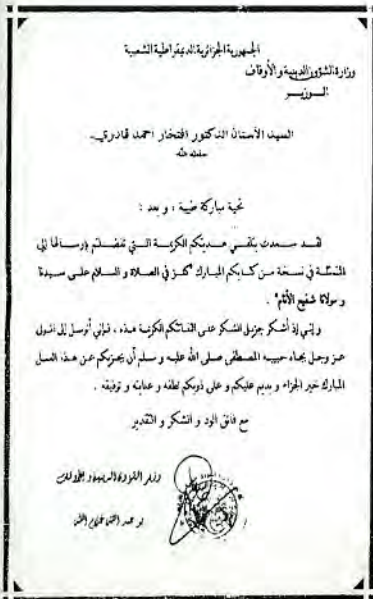 الجمهورية الجزائرية الديمقراطية الشعبية
وزارة الشؤون الدينية والأوقاف
الوزير
السيد الأستاذ الدكتور افتخار احمد قادري
سلمه الله
تحية مباركة طيبة ، و بعد :
لقد سعدت بتلقي هديتكم الكريمة التي تفضلتم بإرسالها إلي
المتمثلة في نسخة من كتابكم المبارك "كنز في الصلاة و السلام على سيدنا
و مولانا شفيع الأنام" .
و إنني إذ أشكر جزيل الشكر على التفاتتكم الكريمة هذه ، فإني أتوسل إلى المولى
عز وجل بجاه حبيبه المصطفى صلى الله عليه و سلم أن يجزيكم عن هذا العمل
المبارك خير الجزاء و يديم عليكم و على ذويكم لطفه و عنايته و توفيقه .
مع فائق الود و الشكر و التقدير
وزير الشؤون الدينية والأوقاف